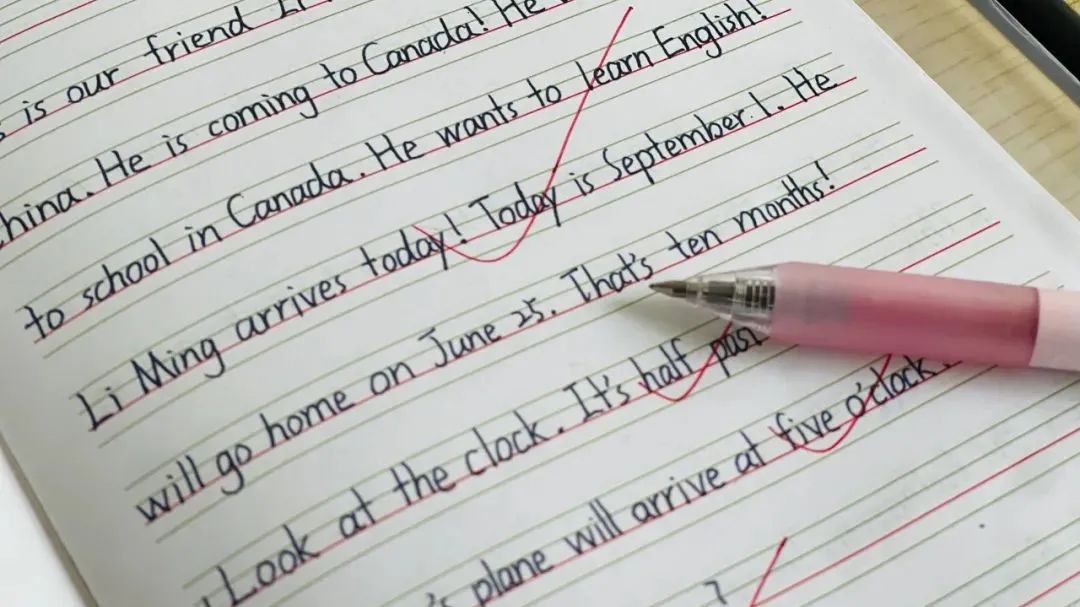 is our friend Li
China. He is coming to Canada! He
to school in Canada. He wants to learn English!
Li Ming arrives today! Today is September 1. He
will go home on June 25. That's ten months!
Look at the clock. It's half past
's plane will arrive at five o'clock.